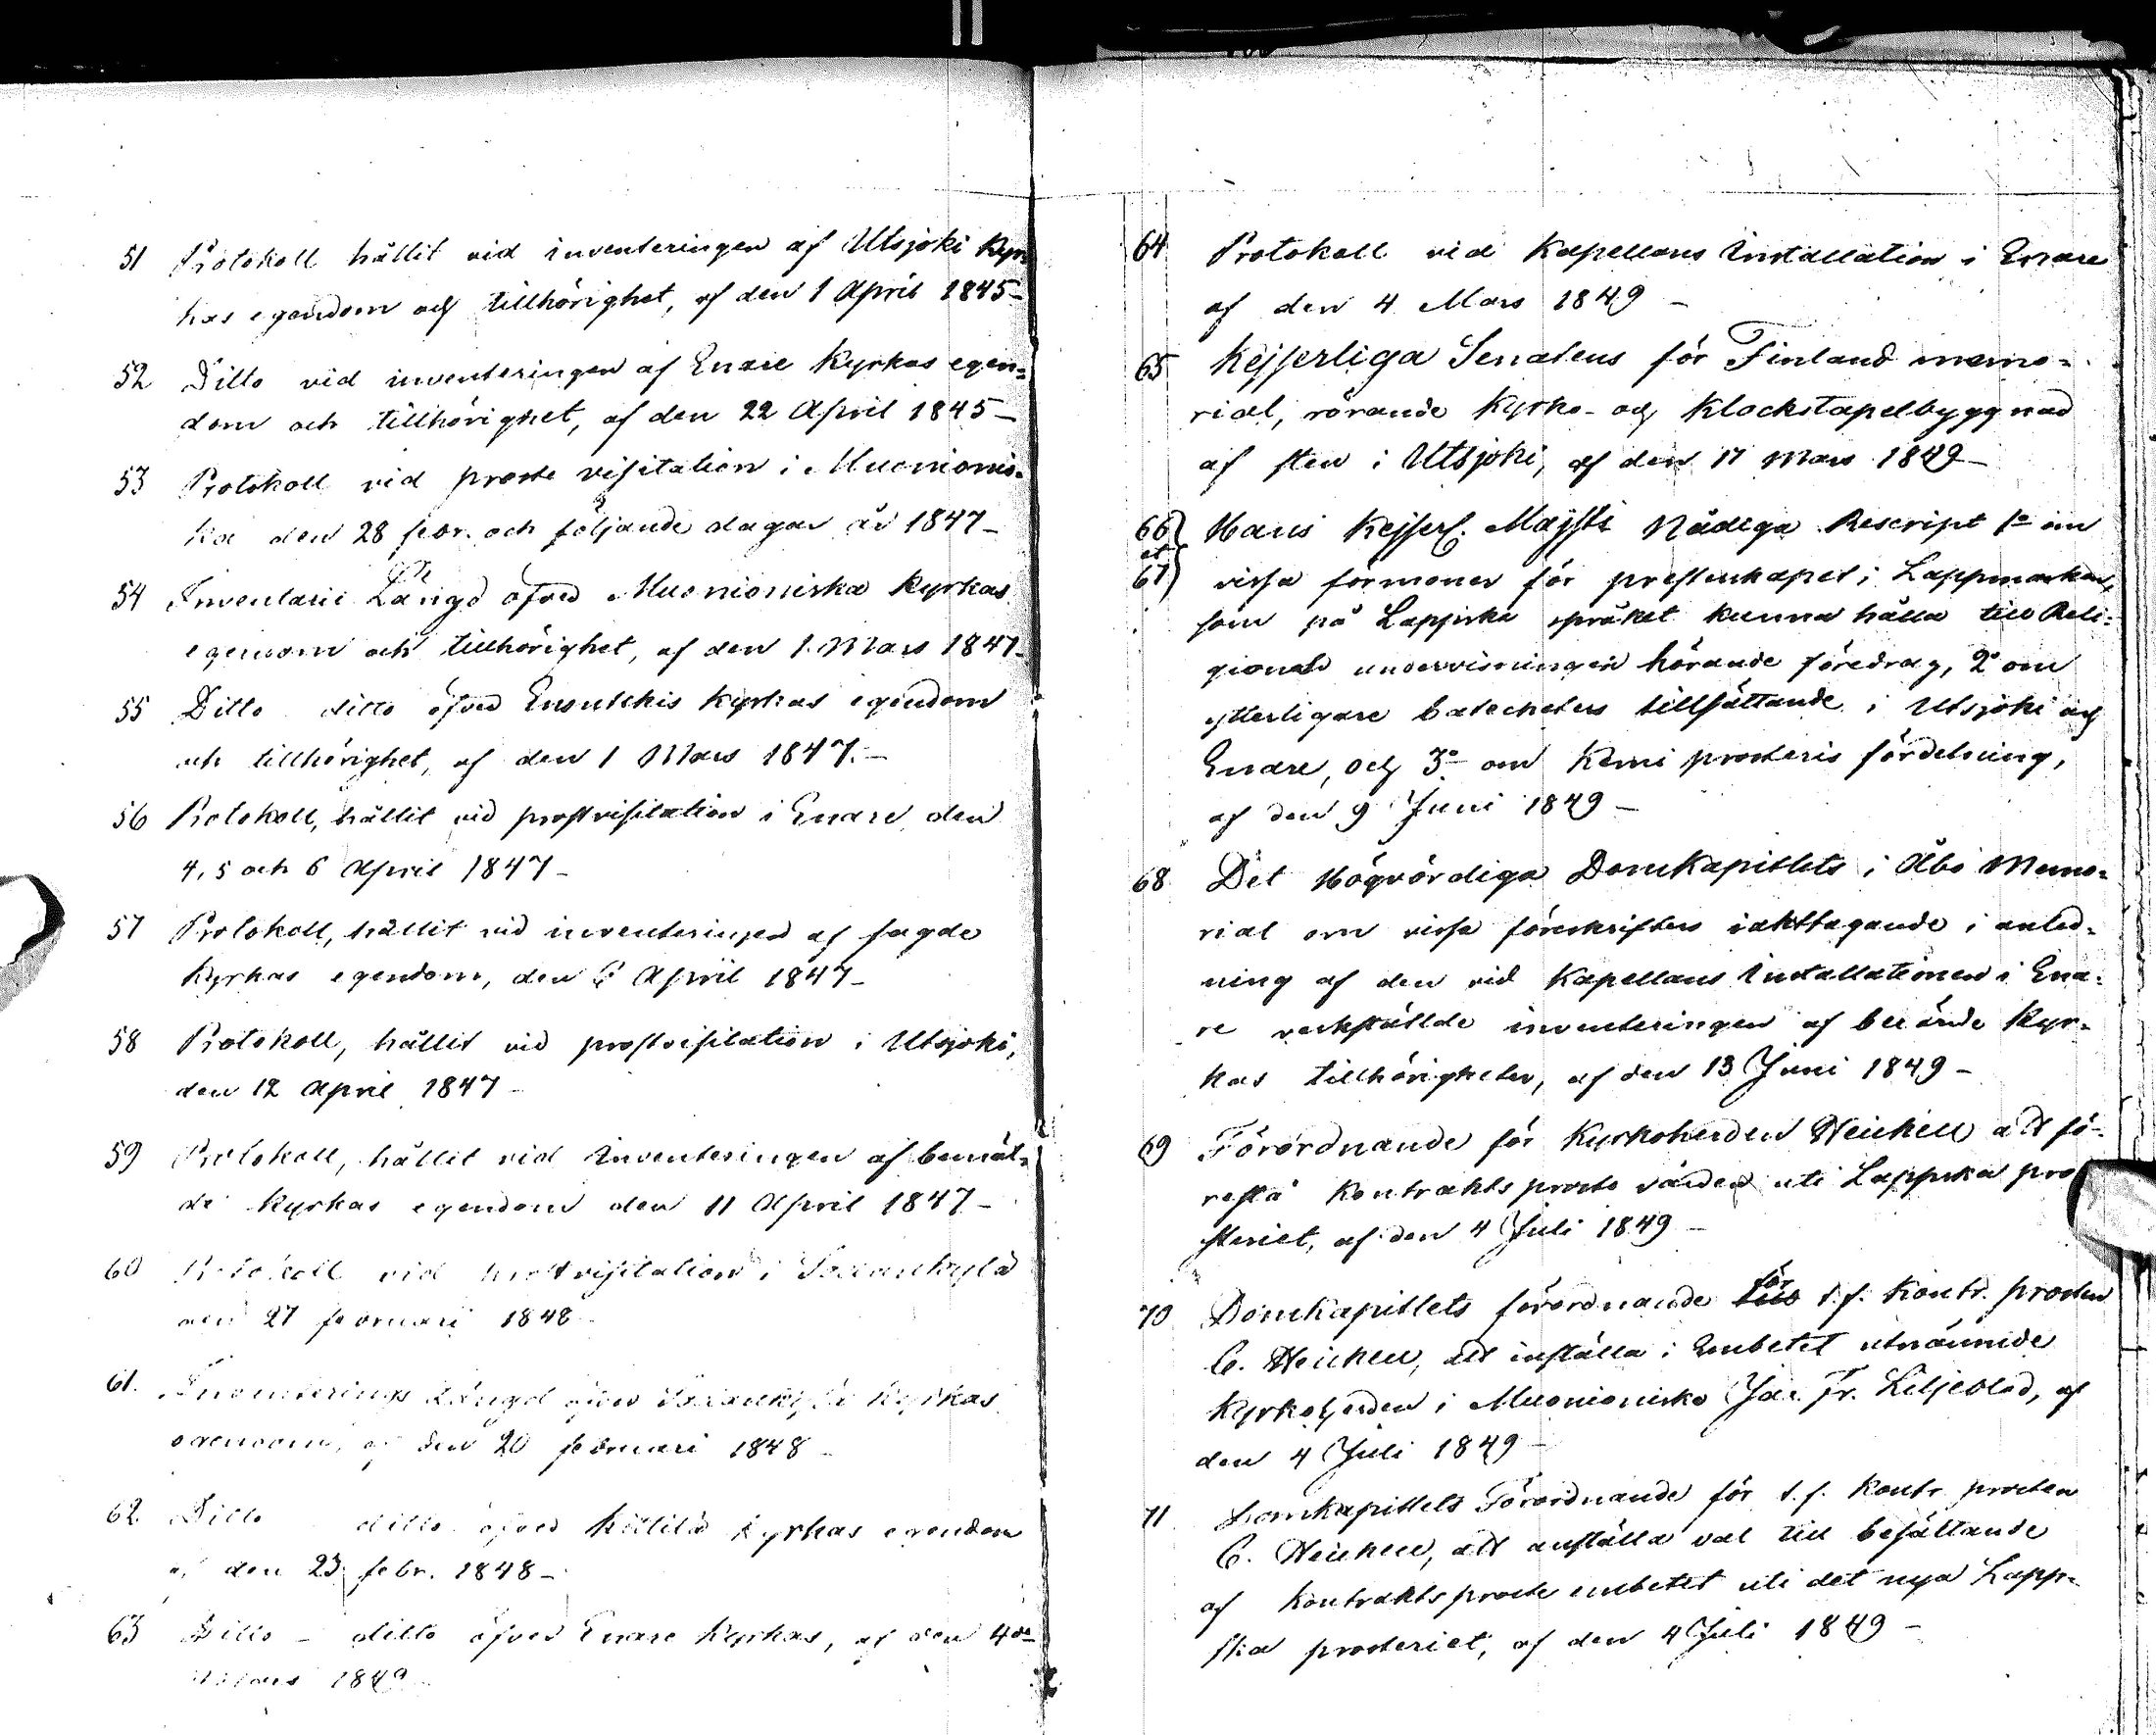 51 Protokoll hållit vid inventeringen af Utsjoki Kyr-
kas egendom och tillhörighet, af den 1 April 1845 -
52 Ditto vid inventeringen af Enare Kyrkas egen=
dom och tillhörighet, af den 22 April 1845 -
53 Protokoll vid proste visitation i Muonionis=
ka den 28 febr. och följande dagar år 1847 -
54 Inventarie Längd öfver Muonioniska Kyrkas
egendom och tillhörighet, af den 1. Mars 1847 -
55 Ditto ditto öfver Enontekis Kyrkas egendom
och tillhörighet, af den 1 Mars 1847. -
56 Protokoll, hållit vid prostvisitation i Enare den
4, 5 och 6 April 1847 -
57 Protokoll, hållit vid inventeringen af sagde
Kyrkas egendom, den 6 April 1847 -
58 Protokoll, hållit vid prostvisitation i Utsjoki,
den 12 April 1847 -
59 Protokoll, hållit vid Inventeringen af bemäl=
de Kyrkas egendom den 11 April 1847 -
60 Protokoll vid prostvisitation i Sodankylä
den 27 februari 1848
61. Inventerings Längd öfver Sodankylä Kyrkas
egendom, af den 20 februari 1848 -
62. Ditto ditto öfver Kittilä Kyrkas egendom
af den 23 febr. 1848 -
63 Ditto - ditto öfver Enare Kyrkas, af den 4de
Mars 1849
64 Protokoll vid Kapellans Installation i Enare
af den 4 Mars 1849 -
65 Kejserliga Senatens för Finland memo=
rial, rörande Kyrko- och Klockstapelbyggnad
af sten i Utsjoki, af den 17 Mars 1849 -
66 Hans Kejserl. Majsts Nådiga Rescript 1o om
et
67 vissa förmoner för presterskapet i Lappmarken,
som på Lappska språket kunna hålla till Reli=
gions undervisningen hörande föredrag, 2o om
ytterligare Catecheters tillsättande i Utsjoki och
Enare, och 3o om Kemi prosteris fördelning,
af den 9 Juni 1849 -
68 Det Högvördiga Domkapitlets i Åbo Memo=
rial om vissa föreskrifters iakttagande i anled=
ning af den vid Kapellans Installationen i Ena=
re verkställde inventeringen af berörde Kyr=
kas tillhörigheter, af den 13 Juni 1849 -
69 Förordnande för Kyrkoherden Heickell att fö=
restå Kontrakts proste vården uti Lappska pro
steriet, af den 4 Juli 1849 -
70 Domkapitlets förordnande för t.f. Kontr. prosten
C. Heickell, att inställa i Embetet utnämnde
Kyrkoherden i Muonionisko Jac. Fr. Liljeblad, af
den 4 Juli 1849 -
71 Domkapitlets Förordnande för t.f. Kontr prosten
C. Heickell, att anställa val till besättande
af Kontrakts proste embetet uti det nya Lapp=
ska prosteriet, af den 4 Juli 1849 -